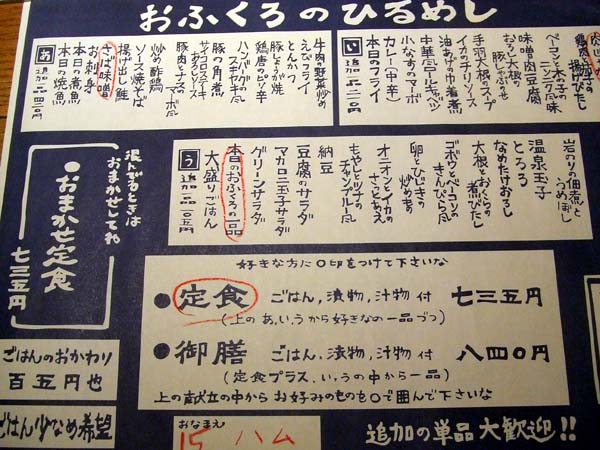 おふくろのひるめし
い
追加二一〇円
本日のフライ
カレー(中辛)
小なすのマーボ
中華風ロールキャベツ
油あげ巾着煮
イカのチリソース
手羽大根のスープ
おろし大根の
豚しゃぶのせ
味噌肉豆腐
ベーコンと木子の
ニンニク風味
揚げびたし
あ
追加三一五〇円
本日の焼魚
本日の煮魚
お刺身
さば味噌
揚げ出し鮭
ソース焼そば
炒め酢鶏
豚肉となすの
マーボ風
サイコロステーキ
おろしソース
豚の角煮
ハンバーグの
スキヤキ風
鶏唐のピリ辛
豚しょうが焼
とんかつ
えびフライ
牛肉の野菜炒め
う
追加一〇五円
大盛りごはん
本日のおふくろの一品
グリーンサラダ
マカロニ玉子サラダ
豆腐のサラダ
納豆
もやしとツナの
チャンプルー風
オニオンとイカの
さっとあえ
卵とひじきの
炒めもの
ゴボウとベーコンの
きんぴら風
大根とおくらの
煮びたし
なめたけおろし
とろろ
温泉玉子
岩のりの佃煮と
うめぼし
混んでるときは
おまかせしてね
●おまかせ定食
七三五円
好きな方に○印をつけて下さいな
●定食 ごはん,漬物,汁物 付 七三五円
(上のあ,い,うから好きなの一品づつ)
●御膳 ごはん、漬物、汁物 付 八四〇円
(定食プラス、い,うの中から一品)
上の献立の中から お好みのものを○で囲んで下さいな
ごはんのおかわり
百五円也
ごはん少なめ希望
おなまえ
15 ハム
追加の単品大歓迎!!